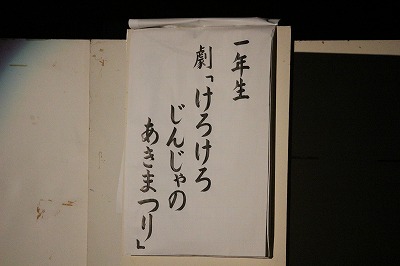 一年生
劇「けろけろ
じんじゃの
あきまつり」